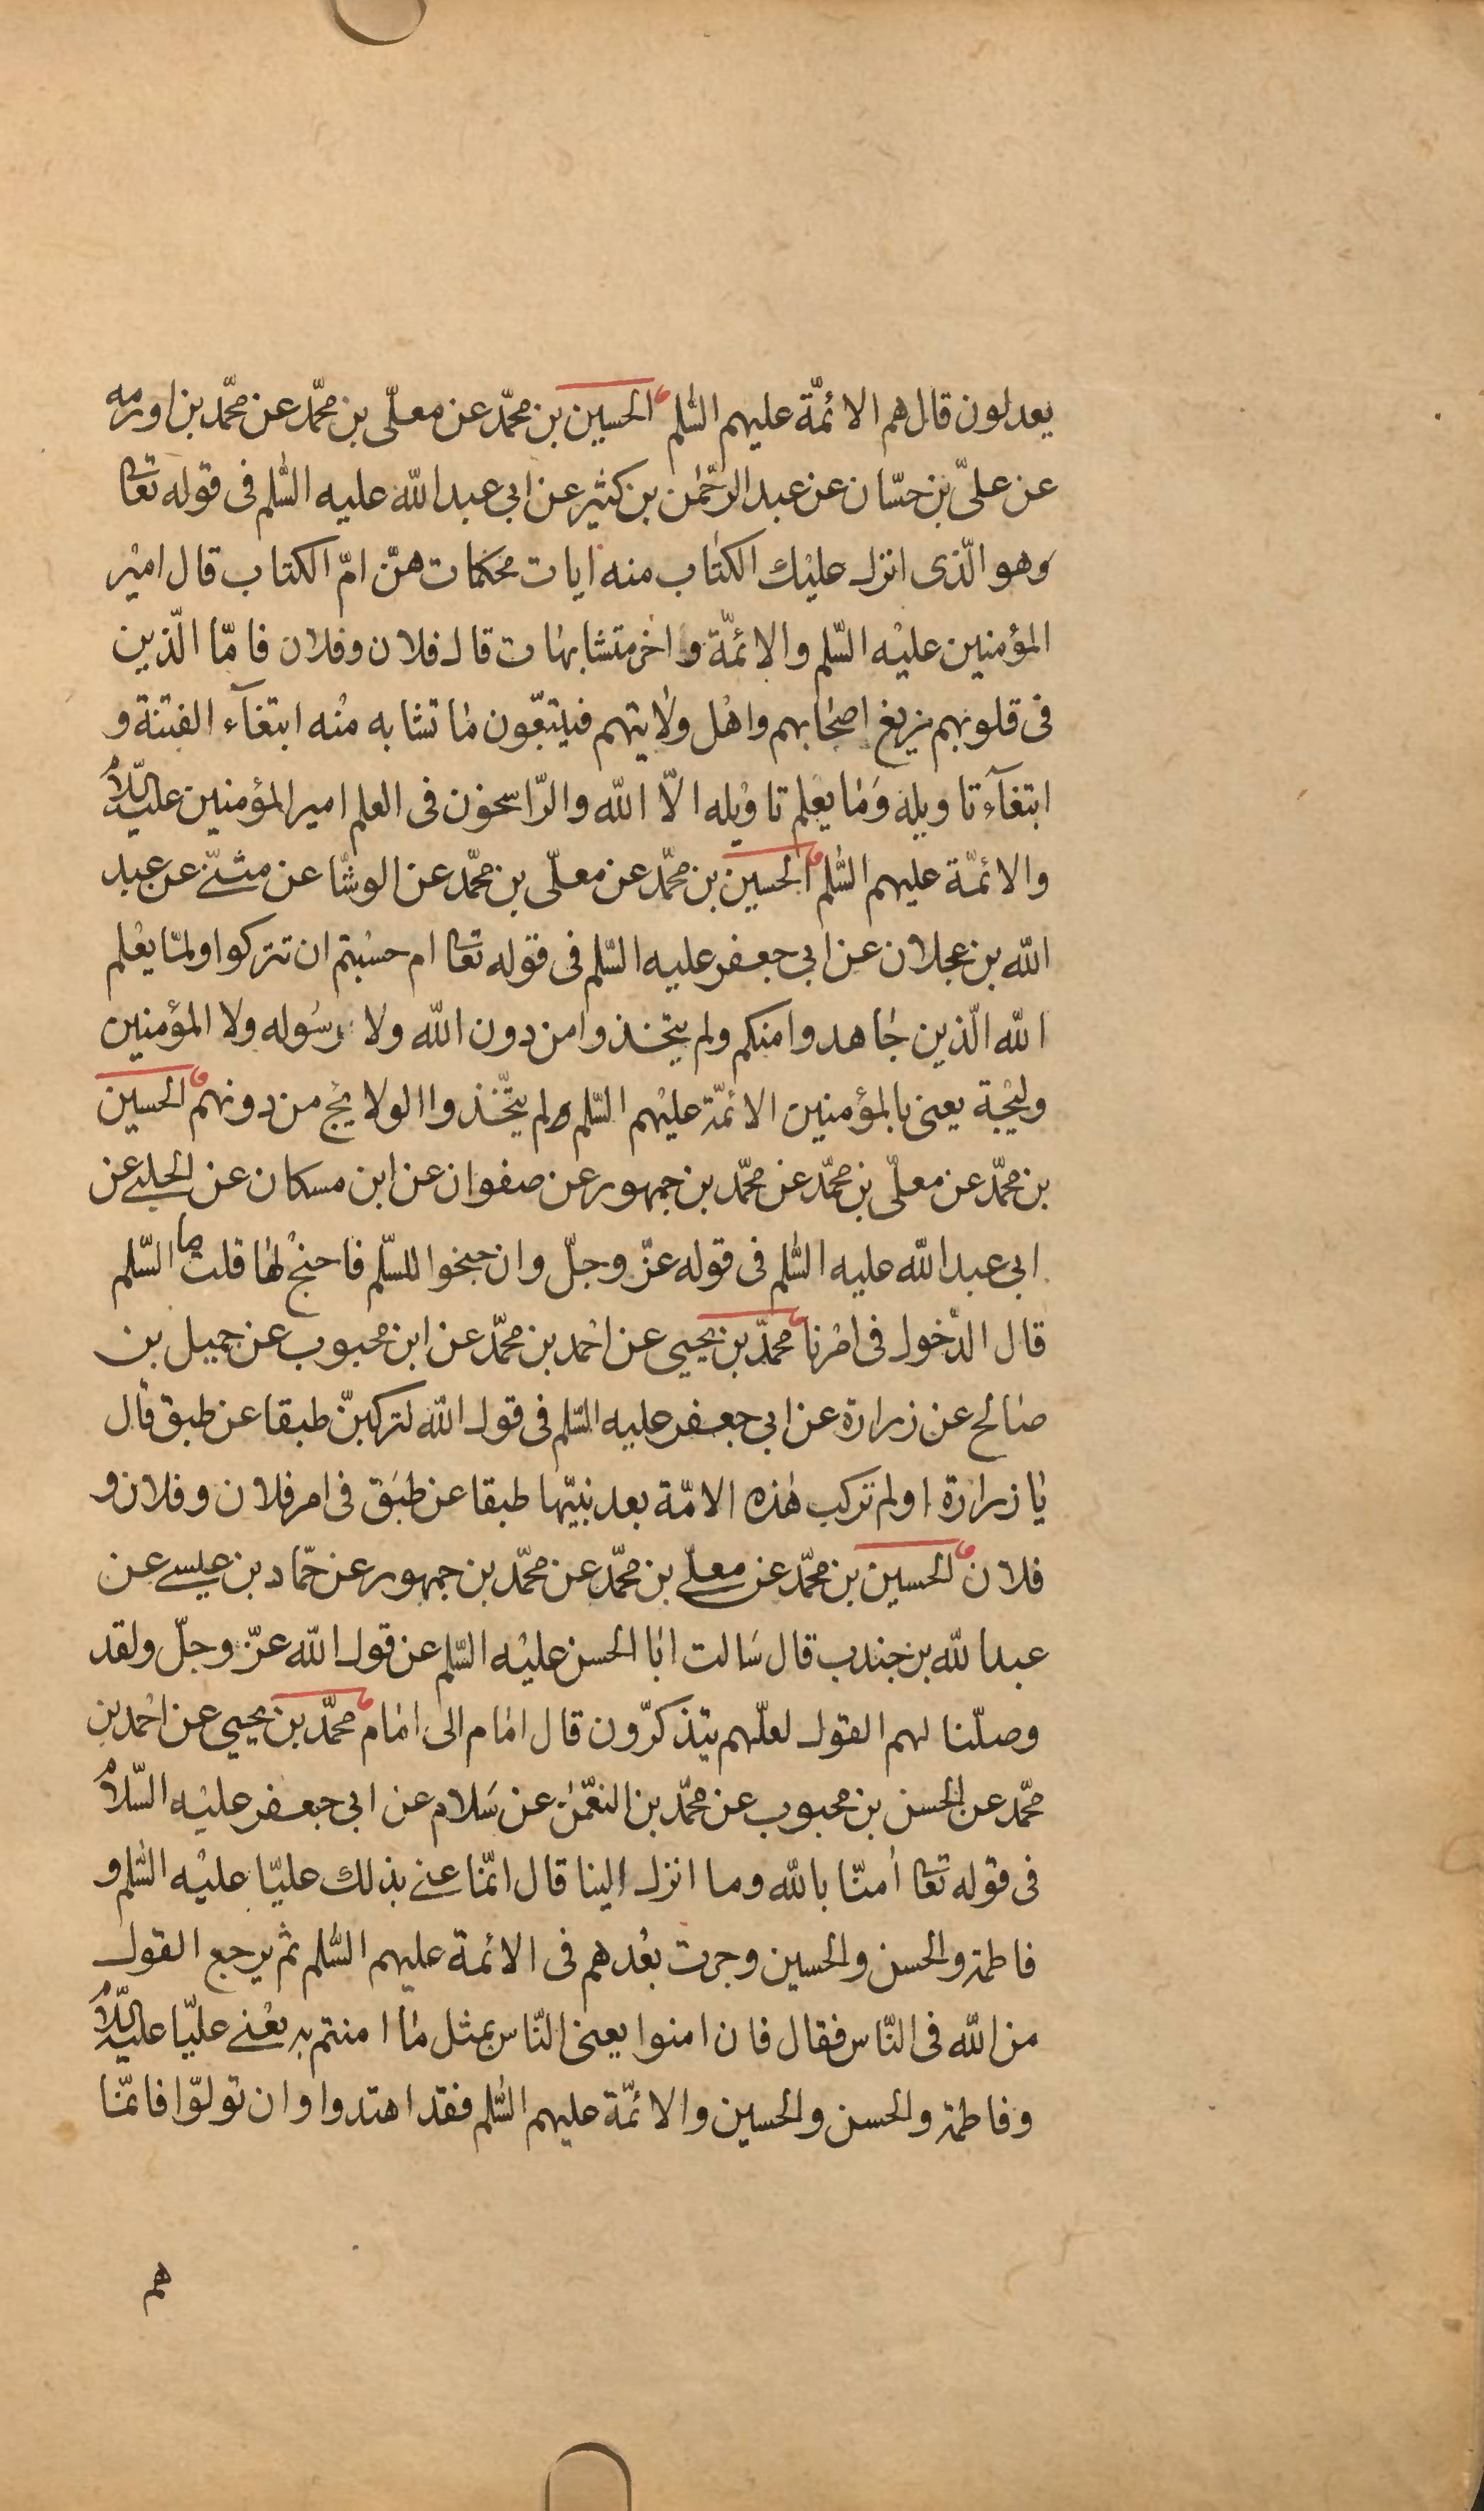 يعدلون قال هم الائمّة عليهم السّلم الحسين بن محمّد عن معلّى بن محمّد عن محمّد بن اورمه
عن علىّ بن حسّان عن عبد الرّحمٰن بن كثير عن ابى عبد اللّه عليه السّلم فى قوله تعا
وهو الّذى انزل عليْك الكتٰاب منه ايات محكمات هنّ امّ الكتاب قال اميْر
المؤمنين عليْه السّلم والائمّة واخر متشابهٰات قال فلان وفلان فامّا الّذين
فى قلوبهم زيغ اصحٰابهم واهْل ولٰايتهم فيتبّعون مٰا تشابه منْه ابتغآء الفتنة و
ابتغآء تاويله وَمٰا يعْلم تاوْيله الّا اللّه والرّاسخون فى العلم امير المؤمنين عليه السّلام
والائمّة عليهم السّلم الحسين بن محمّد عن معلّى بن محمّد عن الوشّا عن مثنّى عن عبد
اللّه بن عجلان عن ابى جعفر عليه السّلم فى قوله تعا ام حسْبتم ان تتركوا ولمّا يعْلم
اللّه الّذين جٰاهدوا منكم ولم يتّخذوا من دون اللّه ولا رسُوله ولا المؤمنين
وليْجة يعنى بالمؤمنين الائمّة عليْهم السّلم ولم يتّخذوا الولايج من دونهم الحسين
بن محمّد عن معلّى بن محمّد عن محمّد بن جمهور عن صفوان عن ابن مسكان عن الحلبى عن
ابى عبد اللّه عليه السّلم فى قوله عزّ وجلّ وان جنحوا للسّلم فاجنحْ لهٰا قلت ما السّلم
قال الدّخول فى امْرنا محمّد بن يحيى عن احْمد بن محمّد عن ابن محبوب عن جميل بن
صٰالح عن زرارة عن ابى جعفر عليه السّلم فى قول اللّه لتركبنّ طبقا عن طبق قٰال
يٰا زرارة اولم تركب هٰذه الامّة بعد نبيّها طبقا عن طبَق فى امر فلان وفلان و
فلان الحسين بن محمّد عن معلّى بن محمّد عن محمّد بن جمهور عن حمّاد بن عيسى عن
عبد اللّه بن جندب قال سَالت ابٰا الحسن عليْه السّلم عن قول اللّه عزّ وجلّ ولقد
وصلّنا لهم القول لعلّهم يتذكرّون قال امٰام الى امٰام محمّد بن يحيى عن احْمد بن
محمّد عن الحسن بن محبوب عن محمّد بن النعمٰن عن سَلام عن ابى جعفر عليْه السّلام
فى قوله تعا اٰمنّا باللّه وما انزل الينا قال انّمٰا عنى بذلك عليّا عليْه السّلم و
فاطمة والحسن والحسين وجرت بعْدهم فى الائمة عليهم السّلم ثم يرجع القول
من اللّه فى النّاس فقال فان امنوا يعنى النّاس بمثل مٰا امنتم به يعْنى عليّا عليه السّلام
وفاطمة والحسن والحسين والائمّة عليهم السّلم فقد اهتدوا وان تولوّا فانّمٰا
هم